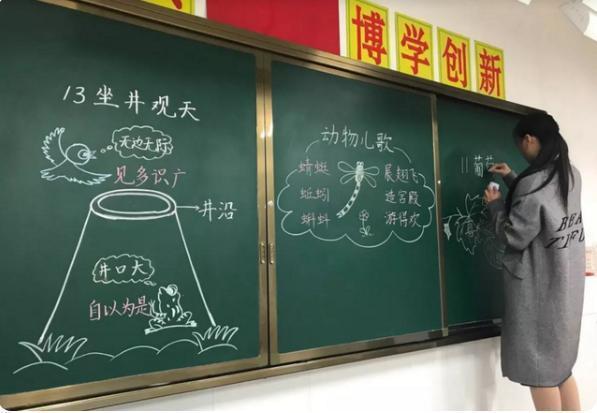 博学创新
13坐井观天
无边无际
见多识广
井沿
井口大
自以为是
动物儿歌
蜻蜓 展翅飞
蚯蚓 造宫殿
蝌蚪 游得欢
11葡萄
BEA
TIFU